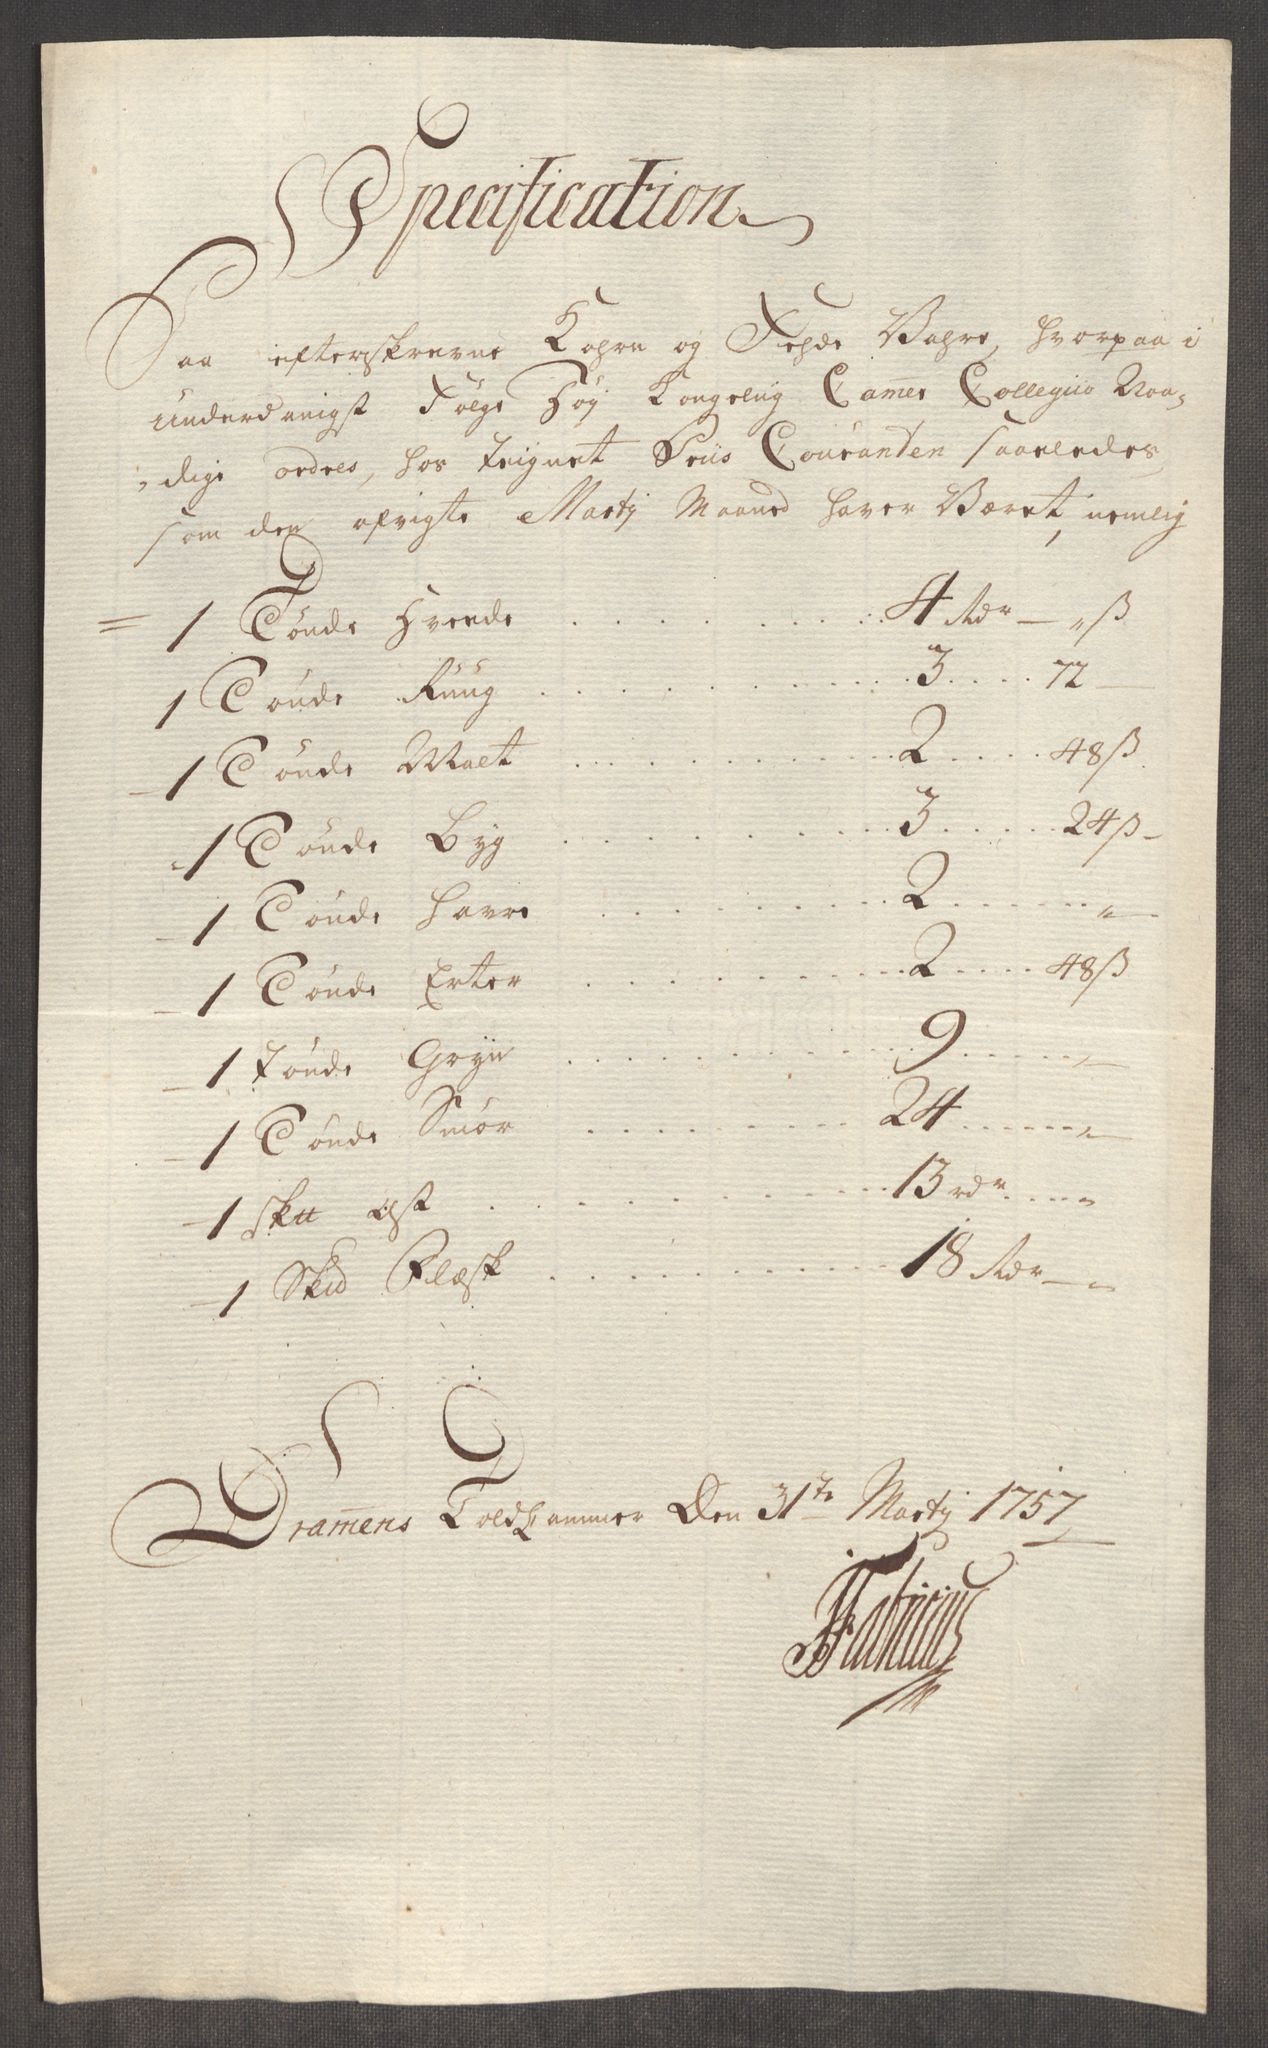 Specification
Paa efterskrevne Kohrn og Fehde Vahre, hvorpaa i
underdanigst Følge Høy Kongelig Cam̄er Collegiio Naa-
dige ordres, hos teignet Priis Couranten saaledes,
som den afvigte Martij Maaned haver Været, nemlig
1 Tønde Hvede . . . . 4 Rdr — „ ß
1 Tønde Ruug . . . . 3 . . . . 72 —
— 1 Tønde Malt . . . . 2 . . . . 48 ß
1 Tønde Byg . . . . 3 . . . . 24 ß —
— 1 Tønde Havre . . . . 2 . . . . „ —
— 1 Tønde Erter . . . . 2 . . . . 48 ß
— 1 Tønde Gryn . . . . 9 . . . . „ —
— 1 Tønde Smør . . . . 24 . . . . „ —
— 1 Sk℔ Ost . . . . 13 rdr . . . . „
— 1 Skid Flæsk . . . . 18 Rdr — „
Dram̄ens Toldkammer Den 31te Martij 1757